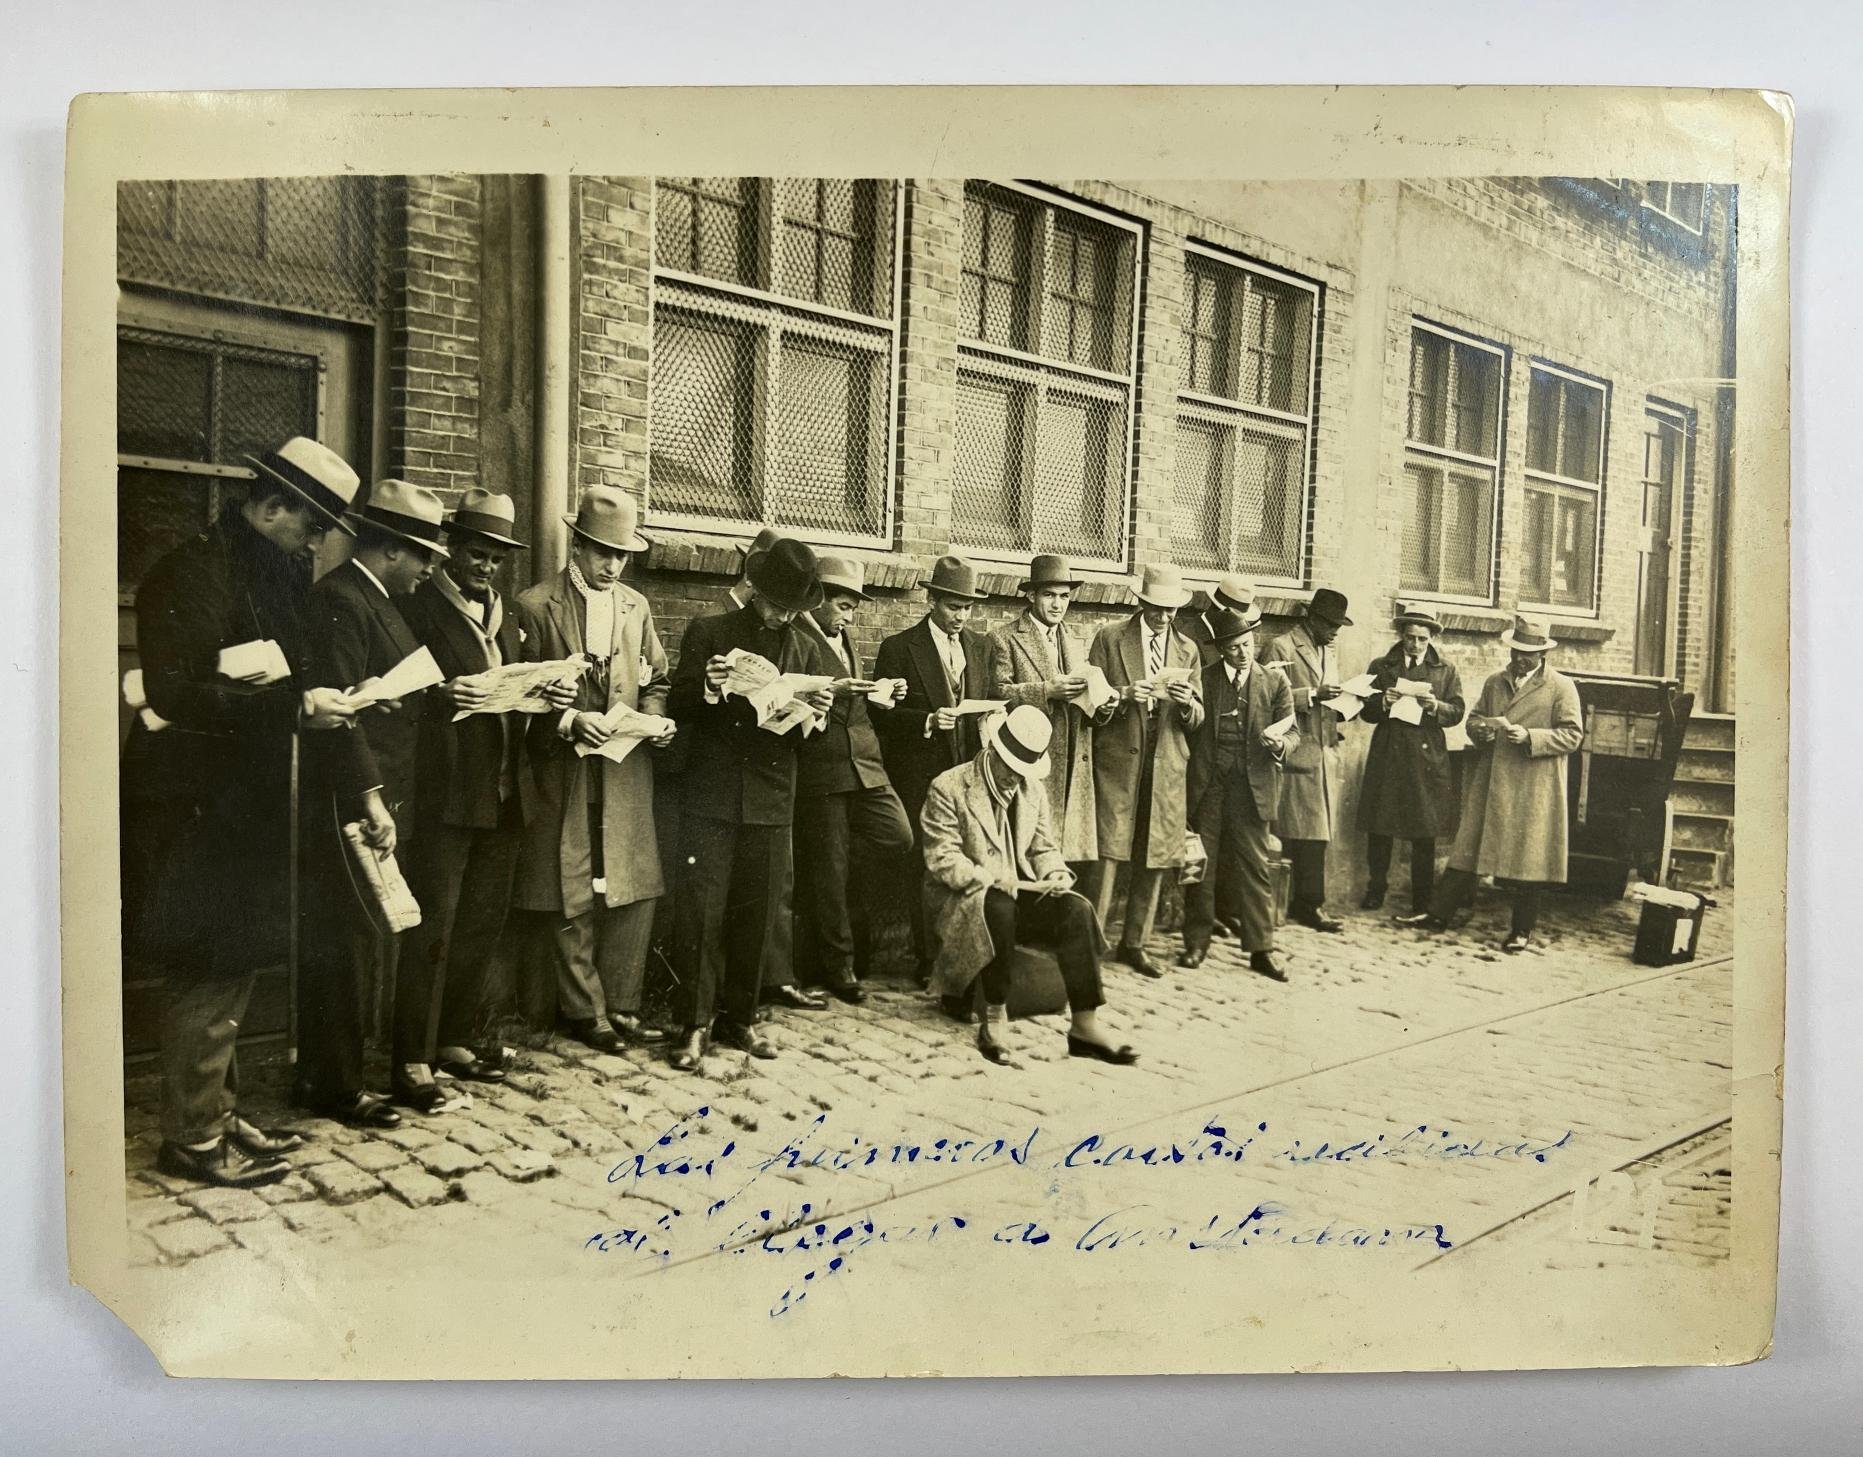 Las primeras cartas recibidas
al llegar a Amsterdam
121